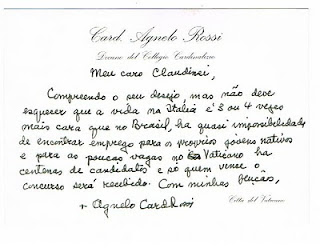 Card. Agnelo Rossi
Decano del Collegio Cardinalizio
Meu caro Claudinei,
Compreendo o seu desejo, mas não deve
esquecer que a vida na Italia é 3 ou 4 vezes
mais cara que no Brasil, ha quasi impossibilidades
de encontrar emprego para os proprios jovens nativos
e para as poucas vagas no Vaticano ha
centenas de candidatos e só quem vence o
concurso será recebido. Com minhas bençãos,
+ Agnelo Card. Rossi
Città del Vaticano